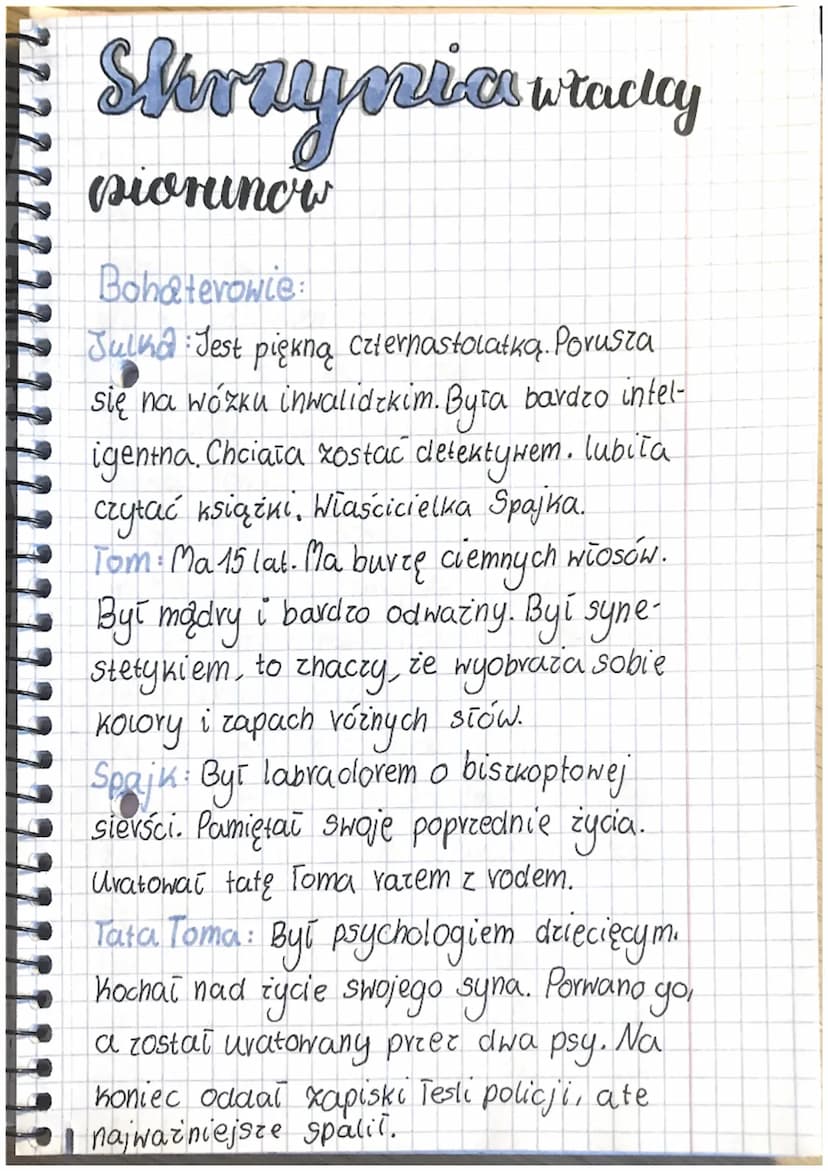 Skrzynia władcy
piorunów
Bohaterowie:
Julka: Jest piękną czternastolatką. Porusza
się na wózku inwalidzkim. Była bardzo intel-
igentna. Chciała zostać detektywem. lubiła
czytać książki. Właścicielka Spajka.
Tom: Ma 15 lat. Ma burzę ciemnych włosów.
Był mądry i bardzo odważny. Był syne-
stetykiem, to znaczy, że wyobraża sobie
kolory i zapach różnych słów.
Spajk: Był labradorem o biszkoptowej
sierści. Pamiętał swoje poprzednie życia.
Uratował tatę Toma razem z rodem.
Tata Toma: Był psychologiem dziecięcym.
Kochał nad życie swojego syna. Porwano go,
a został uratowany przez dwa psy. Na
koniec oddał zapiski Tesli policji, ale
najważniejsze spalił.